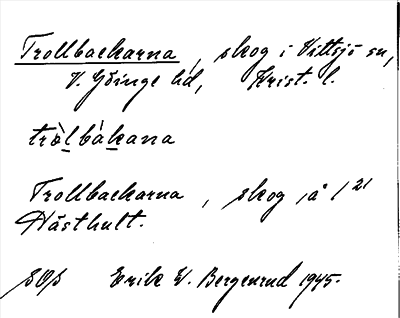 Trollbackarna, skog i Vittsjö sn,
V. Göinge hd, Krist. l.
tròlbákana
Trollbackarna, skog på 1²¹
Hästhult.
SOS Erik W. Bergenrud 1945.